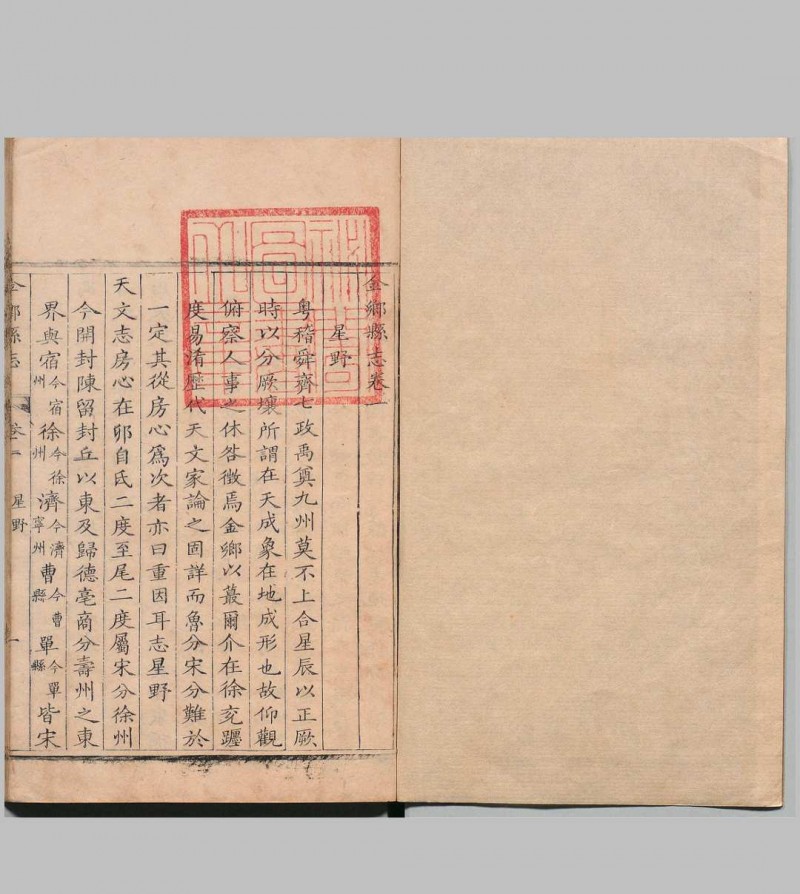 金鄉縣志卷一
星野
粤稽舜齊七政禹奠九州莫不上合星辰以正厥
時以分厥壤所謂在天成象在地成形也故仰觀
俯察人事之休咎徵焉金鄉以蕞爾介在徐兖躔
度易淆歷代天文家論之固詳而魯分宋分難於
一定其從房心為次者亦曰重因耳志星野
天文志房心在卯自氐二度至尾二度屬宋分徐州
今開封陳留封丘以東及歸德亳商分壽州之東
界與宿今宿州徐今徐州濟今濟寧州曹今曹縣單今單縣皆宋
金鄉縣志 卷之一 星野 一